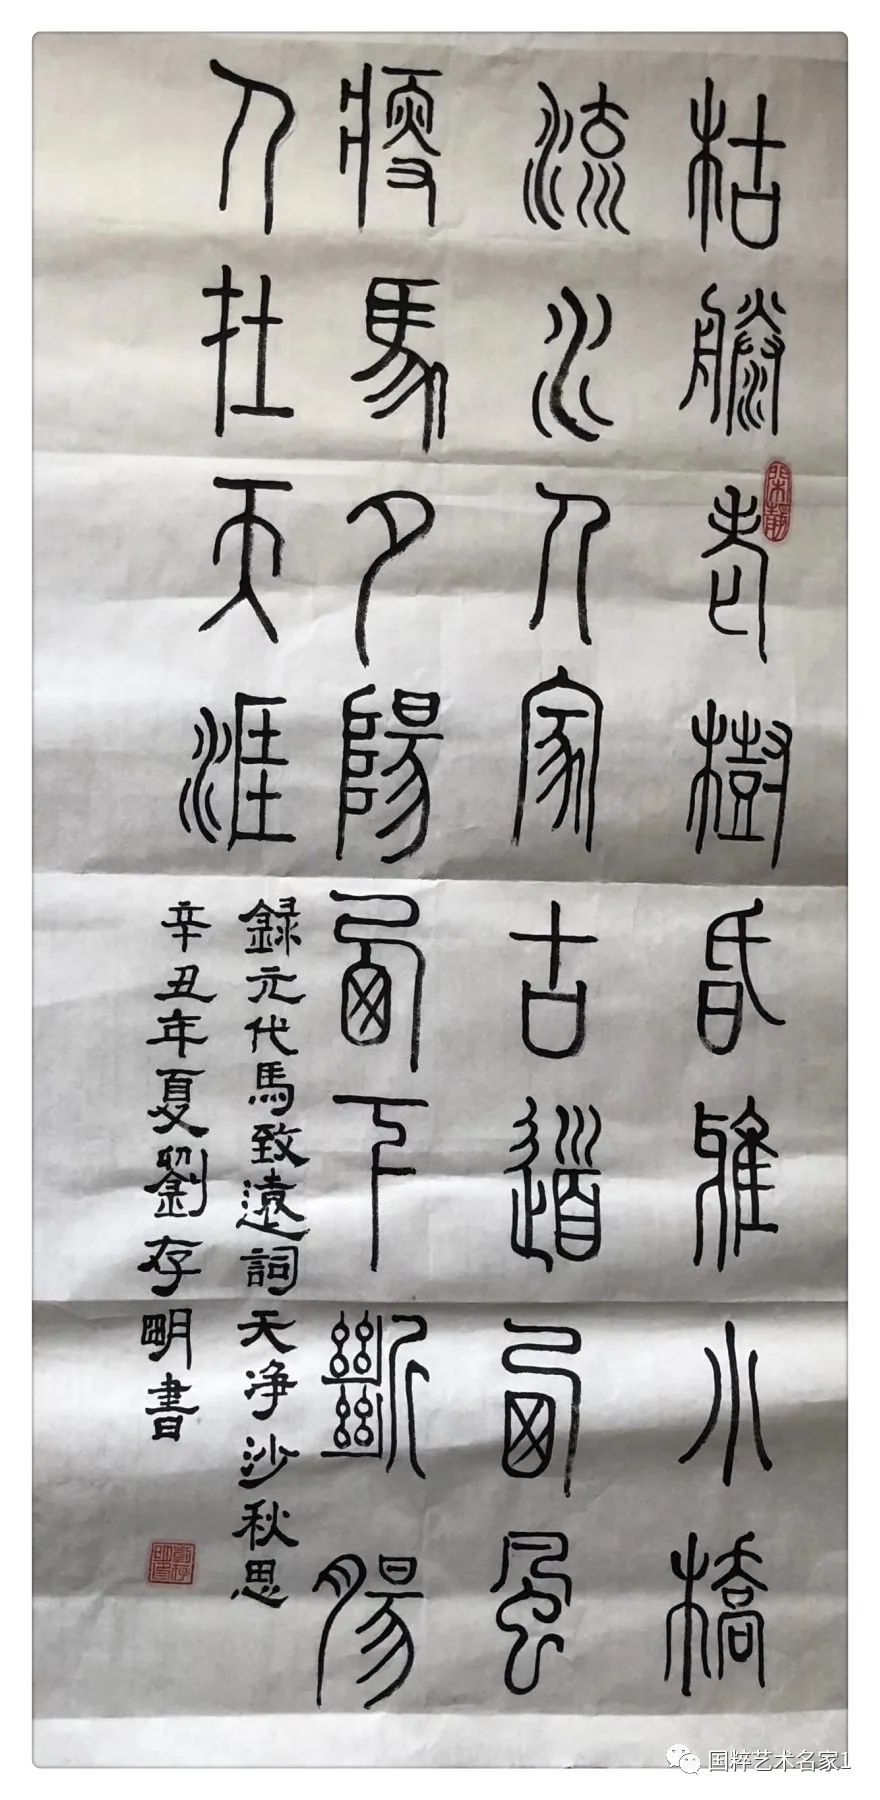 枯藤老樹昏雅小橋
流水人家古道西風
瘦馬夕陽西下斷腸
人在天涯
錄元代馬致遠詞天净沙秋思
辛丑年夏劉存明書
閑靜
国粹艺术名家1